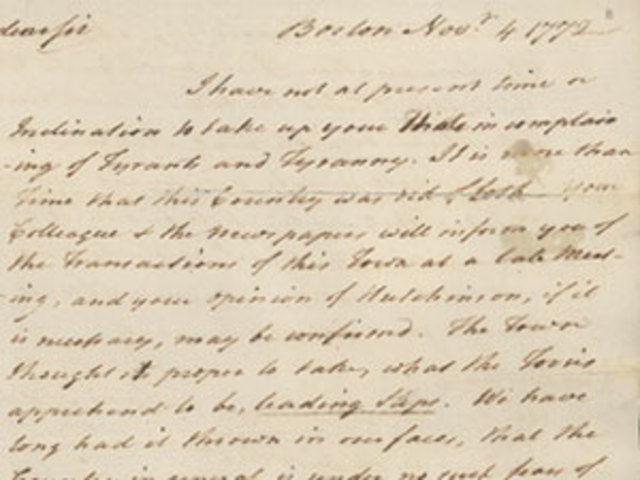 dear sir Boston Novr 4 1772
I have not at present time or
Inclination to take up your in complain
-ing of Tyrants and Tyranny. It is more than
Time that this Country was rid of both Your
Colleague & the newspapers will inform you of
the Transactions of this Town at a late Meet-
-ing, and your opinion of Hutchinson, if it
is necessary, may be confirmd. The Town
thought it proper to take, what the Tories
apprehend to be, leading Steps. We have
long had it thrown in our faces, that the
Country in general is under no such fears of